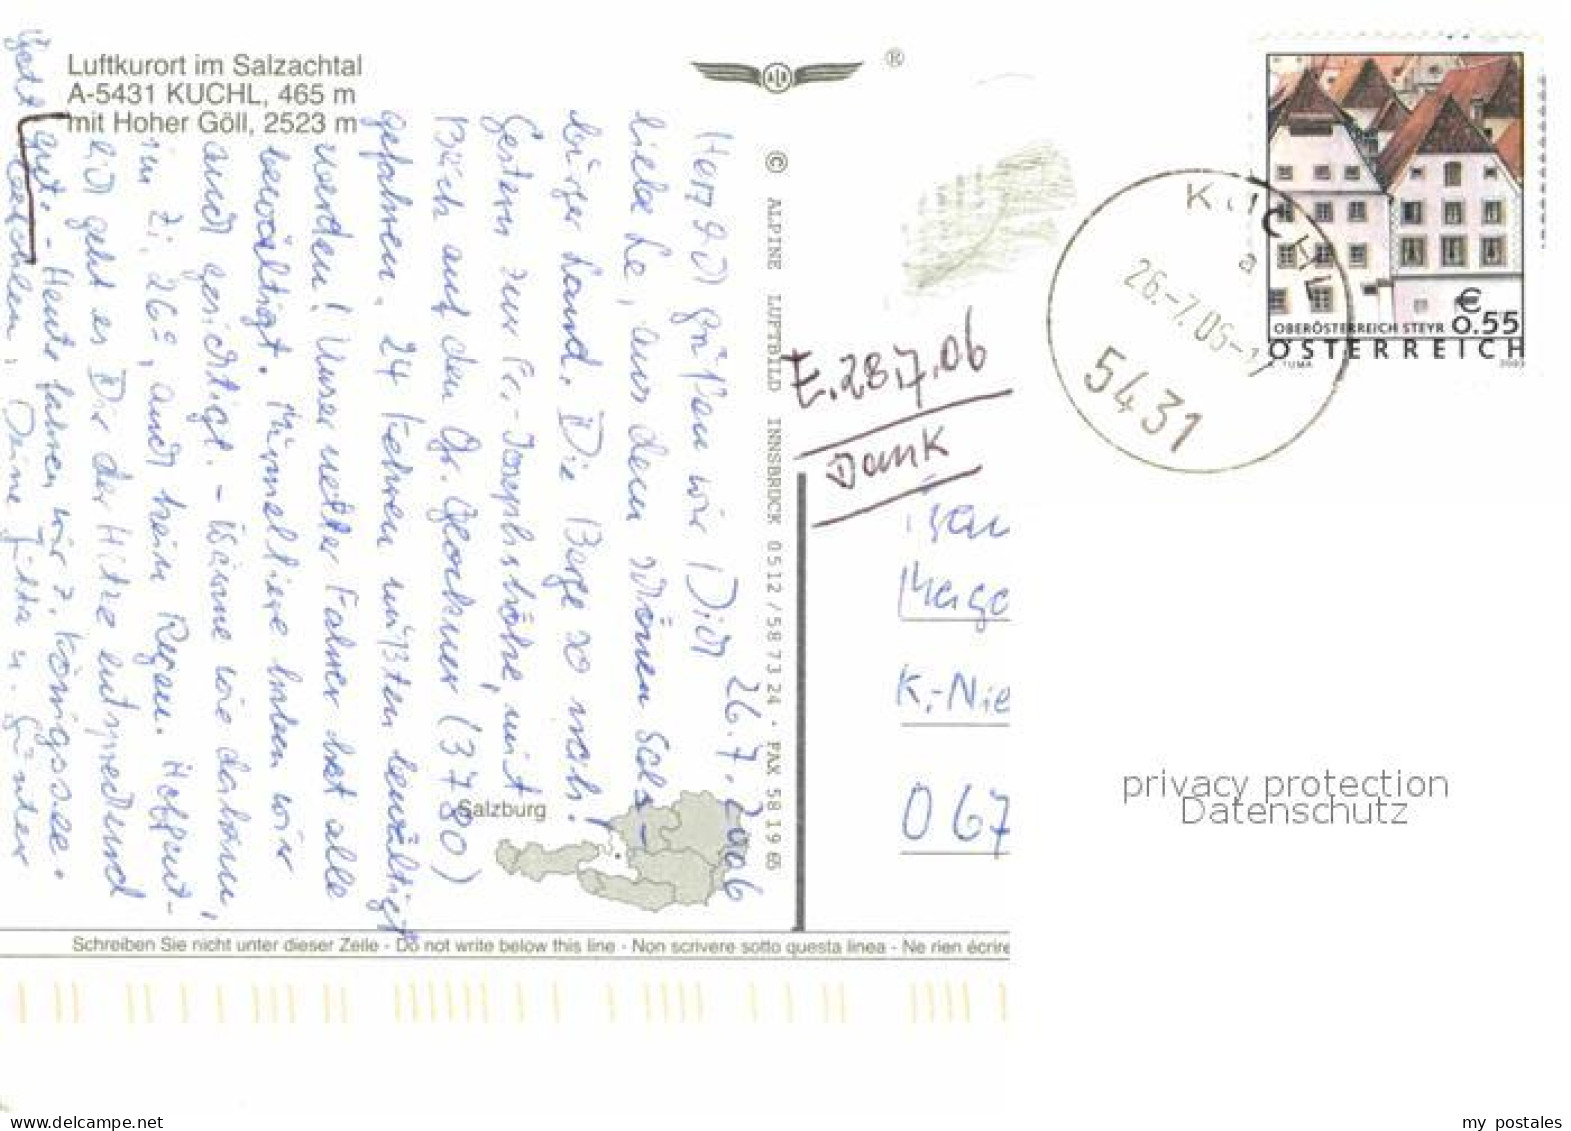 Luftkurort im Salzachtal
A-5431 KUCHL, 465 m
mit Hoher Göll, 2523 m
®
26.7.2006
Herzlich grüßen wir Dich
liebe Le, aus dem schönen Salz-
burger Land. Die Berge so nah!
Gestern zur Fr.-Josephshöhe, mit
Blick auf den Gr. Glockner (3780)
gefahren. 24 Kehren mußten bewältigt
werden! Unser netter Fahrer hat alle
bewältigt. Murmeltiere haben wir
auch gesichtigt. - Wärme wie daheim,
im Zi. 26°, auch kein Regen. Hoffent-
lich geht es Dir der Hitze entsprechend
gut. - Heute fahren wir z. Königssee.
Deine Jutta u. Günter
© ALPINE LUFTBILD INNSBRUCK 0512/587324 · FAX 581965
Salzburg
E. 28.7.06
Dank
K.-Nie
067
KUCHL
a
26.-7.06-
5431
€
0.55
OBERÖSTERREICH STEYR
ÖSTERREICH
A. TUMA
2003
privacy protection
Datenschutz
Schreiben Sie nicht unter dieser Zeile - Do not write below this line - Non scrivere sotto questa linea - Ne rien écrire
my postales